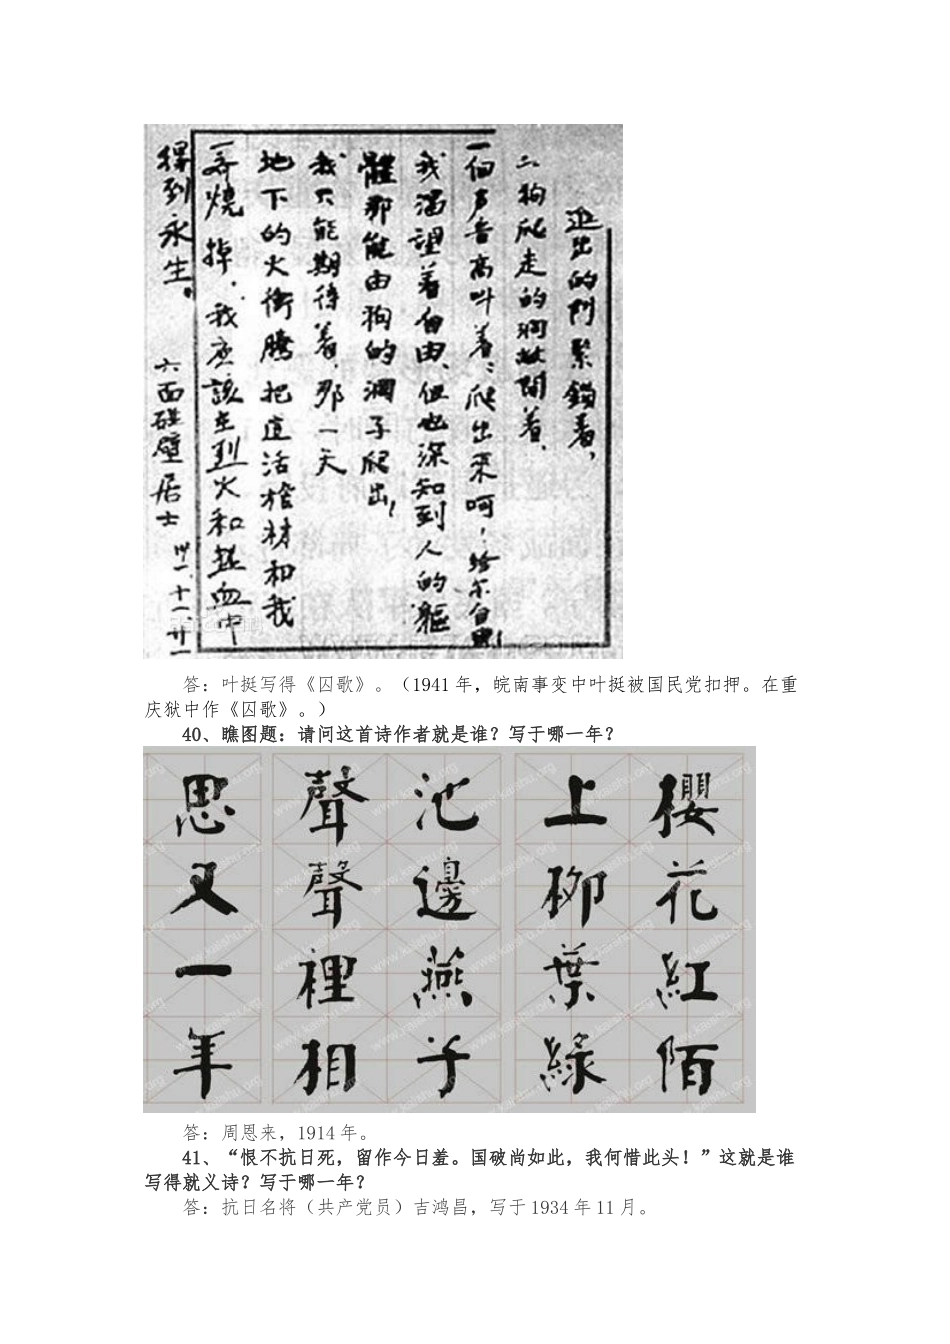 進出的門緊鎖着，
一狗爬走的洞敞開着，
一個声音高叫着：爬出來呵，給尔自由！
我渴望着自由，但也深知到人的軀
體那能由狗的洞子爬出！
我只能期待着，那一天
地下的火衝騰把這活棺材和我
一齊燒掉，我應該在烈火和熱血中
得到永生。
六面碰壁居士
卅一、十一、廿一
答：叶挺写得《囚歌》。（1941 年，皖南事变中叶挺被国民党扣押。在重
庆狱中作《囚歌》。）
40、瞧图题：请问这首诗作者就是谁？写于哪一年？
櫻花紅陌
上柳葉綠
池邊燕子
聲聲裡相
思又一年
www.kaishu.org
答：周恩来，1914 年。
41、“恨不抗日死，留作今日羞。国破尚如此，我何惜此头！”这就是谁
写得就义诗？写于哪一年？
答：抗日名将（共产党员）吉鸿昌，写于 1934 年 11 月。